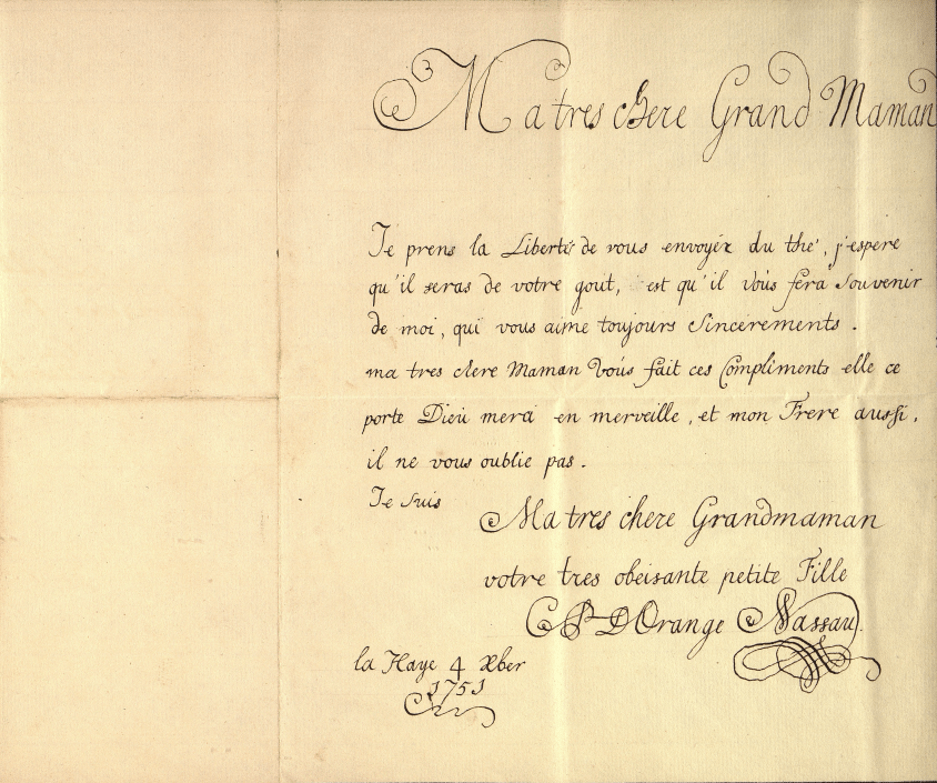 Ma tres chere Grand Maman
Je prens la Liberté de vous envoyér du thé, j'espere
qu'il seras de votre gout, est qu'il vous fera souvenir
de moi, qui vous aime toujours sincerements.
ma tres chere Maman Vous fait ces Compliments elle ce
porte Dieu merci en merveille, et mon Frere aussi,
il ne vous oublie pas.
Je suis
Ma tres chere Grandmaman
votre tres obeisante petite Fille
C P D'Orange Nassau.
la Haye 4 Xber
1751